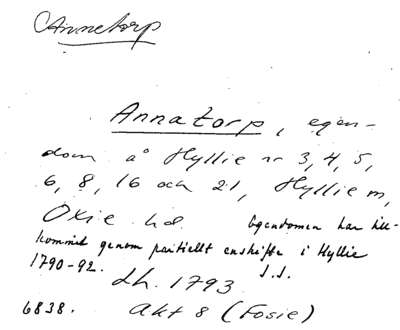 Annetorp
Annatorp, egen-
dom å Hyllie nr 3, 4, 5,
6, 8, 16 och 21, Hyllie sn,
Oxie hd Egendomen har till-
kommit genom partiellt enskifte i Hyllie
1790-92. J.J.
dh. 1793
6838. akt 8 (Fosie)